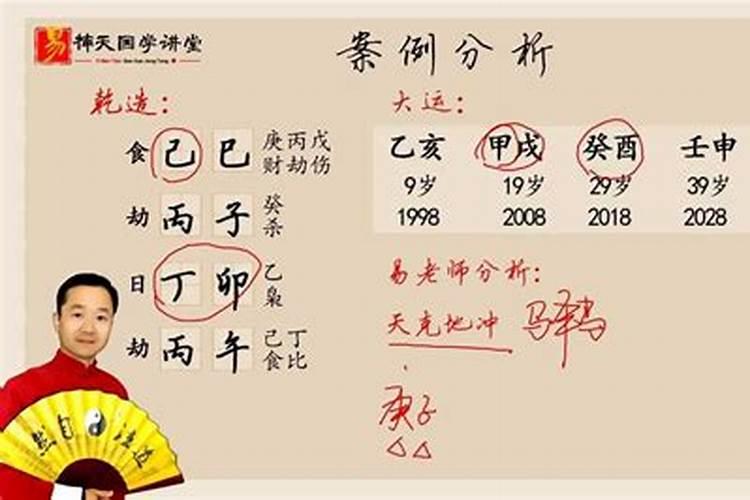 易 楠天国学讲堂
案例分析
乾造：
大运：
食 己 巳 庚丙戊
财劫伤
劫 丙 子 癸
杀
日 丁 卯 乙
枭
劫 丙 午 己丁
食比
乙亥 甲戌 癸酉 壬申
9岁 19岁 29岁 39岁
1998 2008 2018 2028
易老师分析：
天克地冲
庚子
道法自然